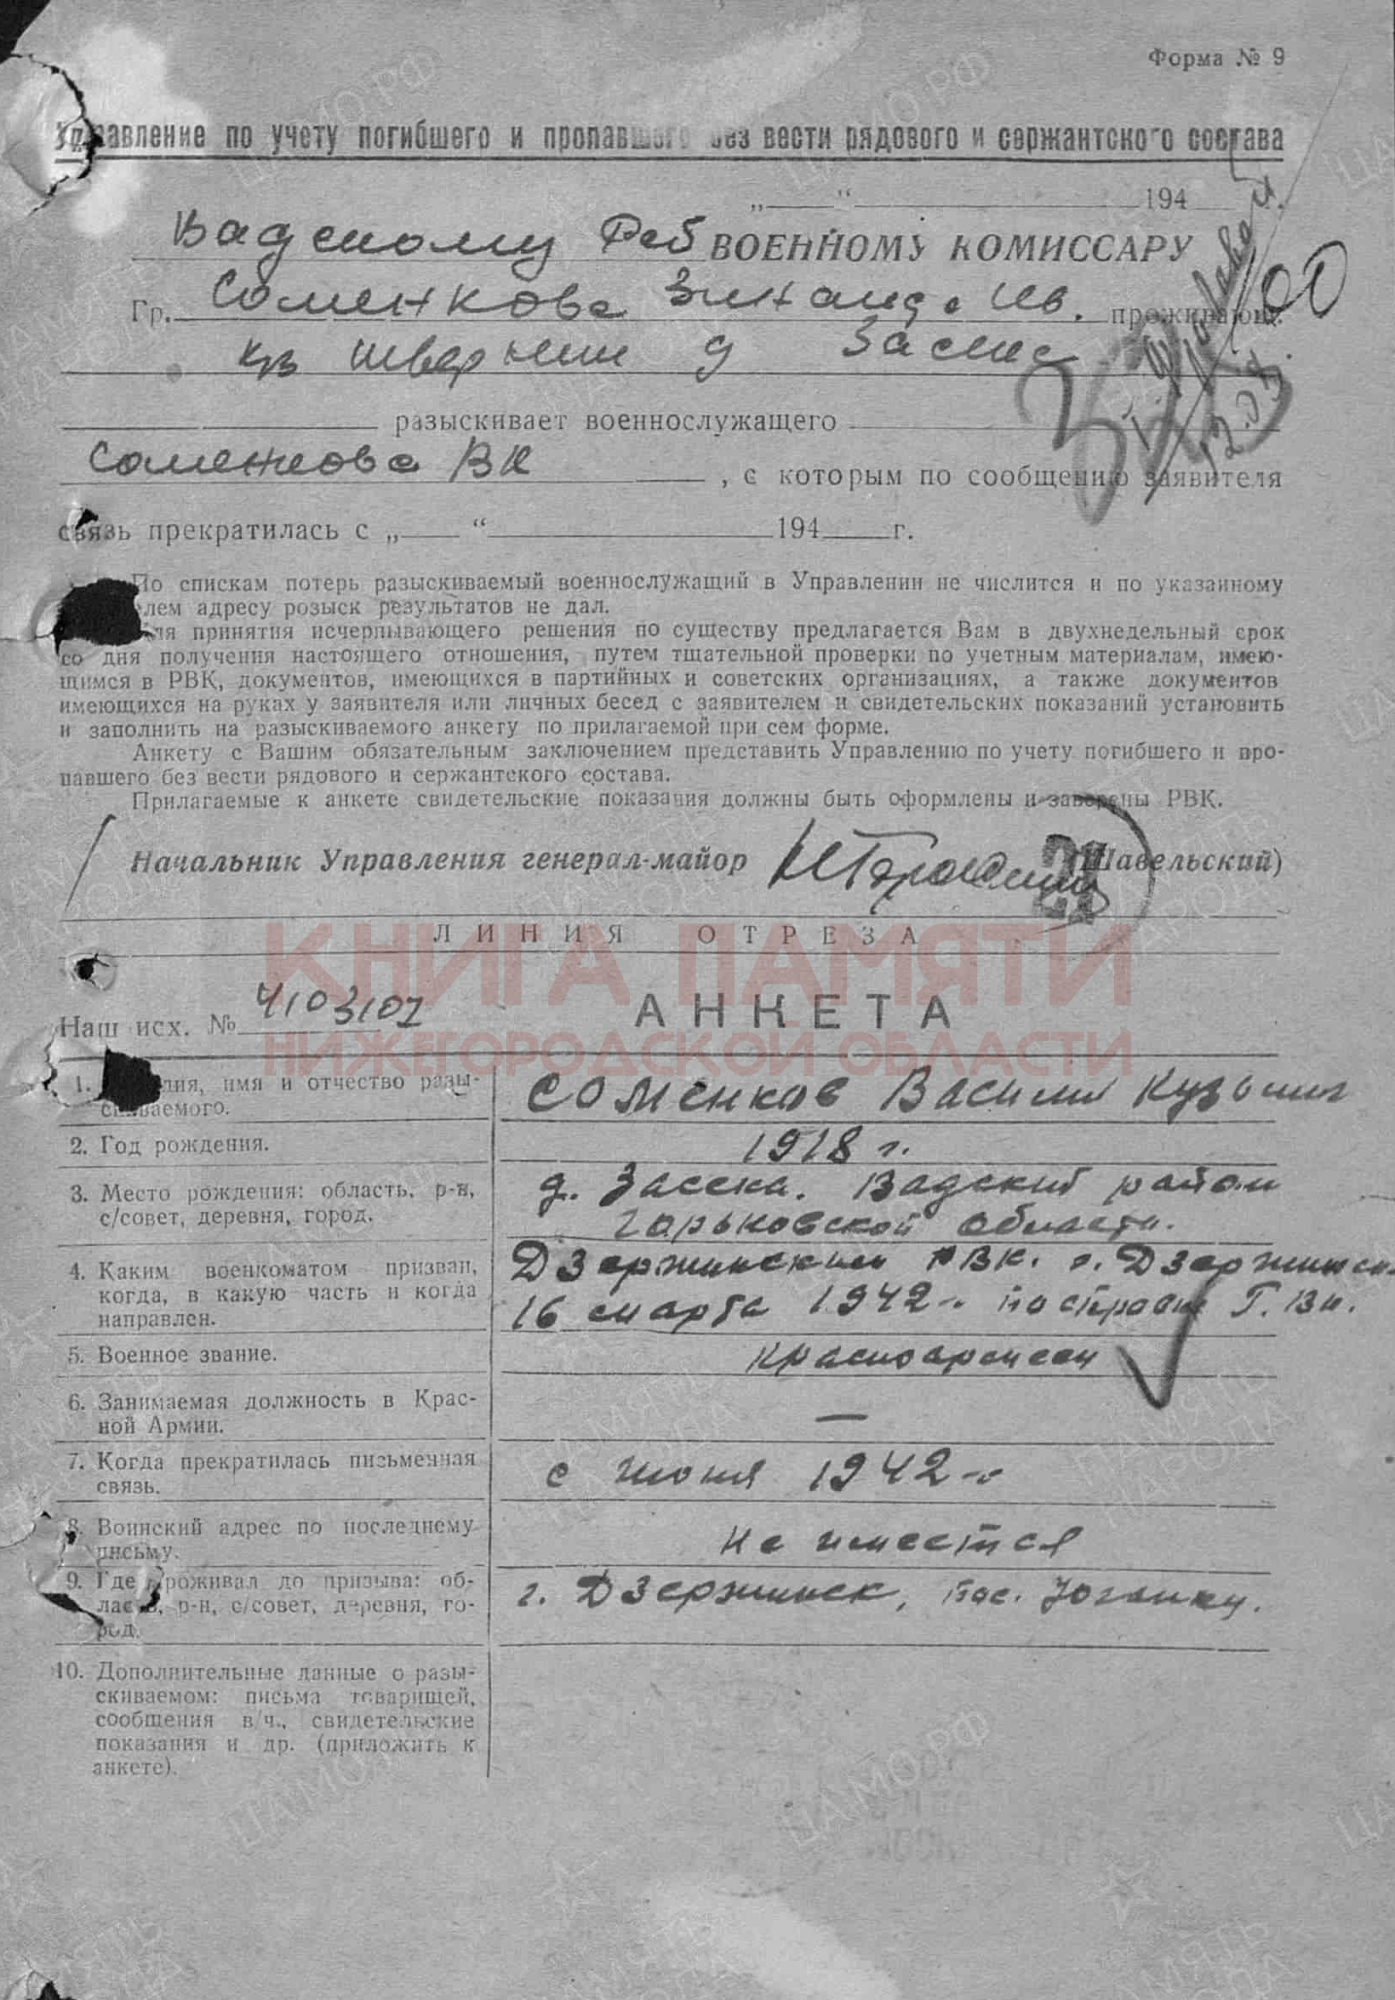 Форма № 9
Управление по учету погибшего и пропавшего без вести рядового и сержантского состава
„ “ 194 г.
Вадскому Рай ВОЕННОМУ КОМИССАРУ
Гр. Соменкова Зинаида Ив. проживающ.
д Засека
разыскивает военнослужащего
Соменкова ВК , с которым по сообщению заявителя
связь прекратилась с „ “ 194 г.
По спискам потерь разыскиваемый военнослужащий в Управлении не числится и по указанному
елем адресу розыск результатов не дал.
ля принятия исчерпывающего решения по существу предлагается Вам в двухнедельный срок
со дня получения настоящего отношения, путем тщательной проверки по учетным материалам, имею-
щимся в РВК, документов, имеющихся в партийных и советских организациях, а также документов
имеющихся на руках у заявителя или личных бесед с заявителем и свидетельских показаний установить
и заполнить на разыскиваемого анкету по прилагаемой при сем форме.
Анкету с Вашим обязательным заключением представить Управлению по учету погибшего и про-
павшего без вести рядового и сержантского состава.
Прилагаемые к анкете свидетельские показания должны быть оформлены и заверены РВК.
Начальник Управления генерал-майор (Шавельский)
21
ЛИНИЯ ОТРЕЗА
КНИГА ПАМЯТИ
НИЖЕГОРОДСКОЙ ОБЛАСТИ
Наш исх. № 4103102 АНКЕТА
1. лия, имя и отчество разы-
скиваемого.
Соменков Василий Кузьмич
2. Год рождения.
1918 г.
3. Место рождения: область, р-н,
с/совет, деревня, город.
д. Засека. Вадский район
Горьковской области.
4. Каким военкоматом призван,
когда, в какую часть и когда
направлен.
Дзержинским РВК. г. Дзержинск
16 марта 1942 г.
5. Военное звание.
красноармеец
6. Занимаемая должность в Крас-
ной Армии.
—
7. Когда прекратилась письменная
связь.
с июня 1942 г
8. Воинский адрес по последнему
письму.
Не имеется
9. Где проживал до призыва: об-
ласть, р-н, с/совет, деревня, го-
род.
г. Дзержинск, пос.
10. Дополнительные данные о разы-
скиваемом: письма товарищей,
сообщения в/ч., свидетельские
показания и др. (приложить к
анкете).